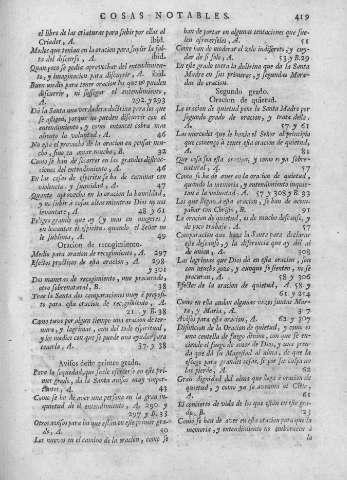 COSAS NOTABLES. 419
el libro de las criaturas para subir por ellas al
Criador, A. ibid.
Modo que tenian en la oracion para suplir la falta
del discurso, A. ibid.
Quan poco se podia aprovechar del entendimiento,
y imaginacion para discurrir, A. ibid.
Buen medio para tener oracion los que no pueden
discurrir, ni sossegar el entendimiento,
A. 292. y 293
De la Santa una verdadera doctrina para los que
se afligen, porque no pueden discurrir con el
entendimiento, y como entonces cobra mas
la voluntad. 46
No está el provecho de la oracion en pensar mucho,
sino en amar mucho, B. 32
Como se han de socorrer en las grandes distracciones
del entendimiento, A. 46
En las cosas de espiritu se ha de caminar con
violencia, y suavidad, A. 47
Quanto aprovecha en la oracion la humildad,
y no subir a cosas altas mientras Dios no nos
levantare, A. 28. y 61
Peligro grande que ay (y mas en mugeres)
en levantar el espiritu, quando el Señor no
le sublima, A. 49
Oracion de recogimiento.
Medio para oracion de recogimiento, A. 297
Efectos practicos de esta oracion, A. 298.
y 301
Dos maneras de recogimiento, uno procurado,
otro sobrenatural, B. 38
Trae la Santa dos comparaciones muy a proposito
para esta oracion de recogimiento, A.
21. y B. 38
Como trae por algun tiempo una oracion de ternura,
y lagrimas, con del todo espiritual,
y los medios con que se puede una ayudar para
traerla, A. 37. y 38
Avisos deste primer grado.
Para la sequedad, que suele ofrecerse en este primer
grado, da la Santa avisos muy importantes,
A. 43
Como se ha de aver una persona en la gran inquietud
de el entendimiento, A. 290. y
297. y B. 33
Otros avisos para los que están en este primer grado,
A. 50
Los nuevos en el camino de la oracion, como se
han de portar en algunas tentaciones que suelen,
A. 51
Como han de moderar el zelo indiscreto, y cuydar
de sí solos, A. 53. y B. 29
En este grado entra la doctrina que da la Santa
Madre en sus primeras, y segundas Moradas
de oracion.
Segundo grado.
Oracion de quietud.
La oracion de quietud pone la Santa Madre por
segundo grado de oracion, y trata della,
A. 57. y 61
Las mercedes que la hazia el Señor al principio
que començó a tener esta oracion de quietud,
A. 81
Que cosa sea esta oracion, y como es ya sobrenatural,
A. 57
Como se ha de aver en la oracion de quietud,
quando la memoria, y entendimiento inquietan
a la voluntad, A. 57. y 308. y B. 33
Los que llegan a esta oracion, se han de acompañar
con Christo, B. 91
La oracion de quietud es de mucho descanso, y
de poco trabajo, A. 57
Comparacion que haze la Santa para declarar
este descanso, y la diferencia que ay del al
de union, A. 308
Las lagrimas que Dios dá en esta oracion, son
con mucho gozo, y aunque se sienten, no se
procuran, A. 58. y 306
Efectos de la oracion de quietud, A. 58. y
61. y 214
Como en ella andan algunas vezes juntas Marta,
y Maria, A. 307
Avisos para esta oracion, A. 62. y 307
Difinicion de la Oracion de quietud, y como es
una centella de fuego divino, con que se enciende
el fuego de amor de Dios, y una prenda
que dá su Magestad al alma, de que la
escoge para grandes cosas, si por su culpa no
las pierde, A. 62
Gran dignidad del alma que llega a oracion de
quietud, y como ya se assoma al Cielo,
A. 61
El concierto de vida de los que están en este grado,
B. 23
Como se han de aver en esta oracion para que la
memoria, y entendimiento no embaracen a
la